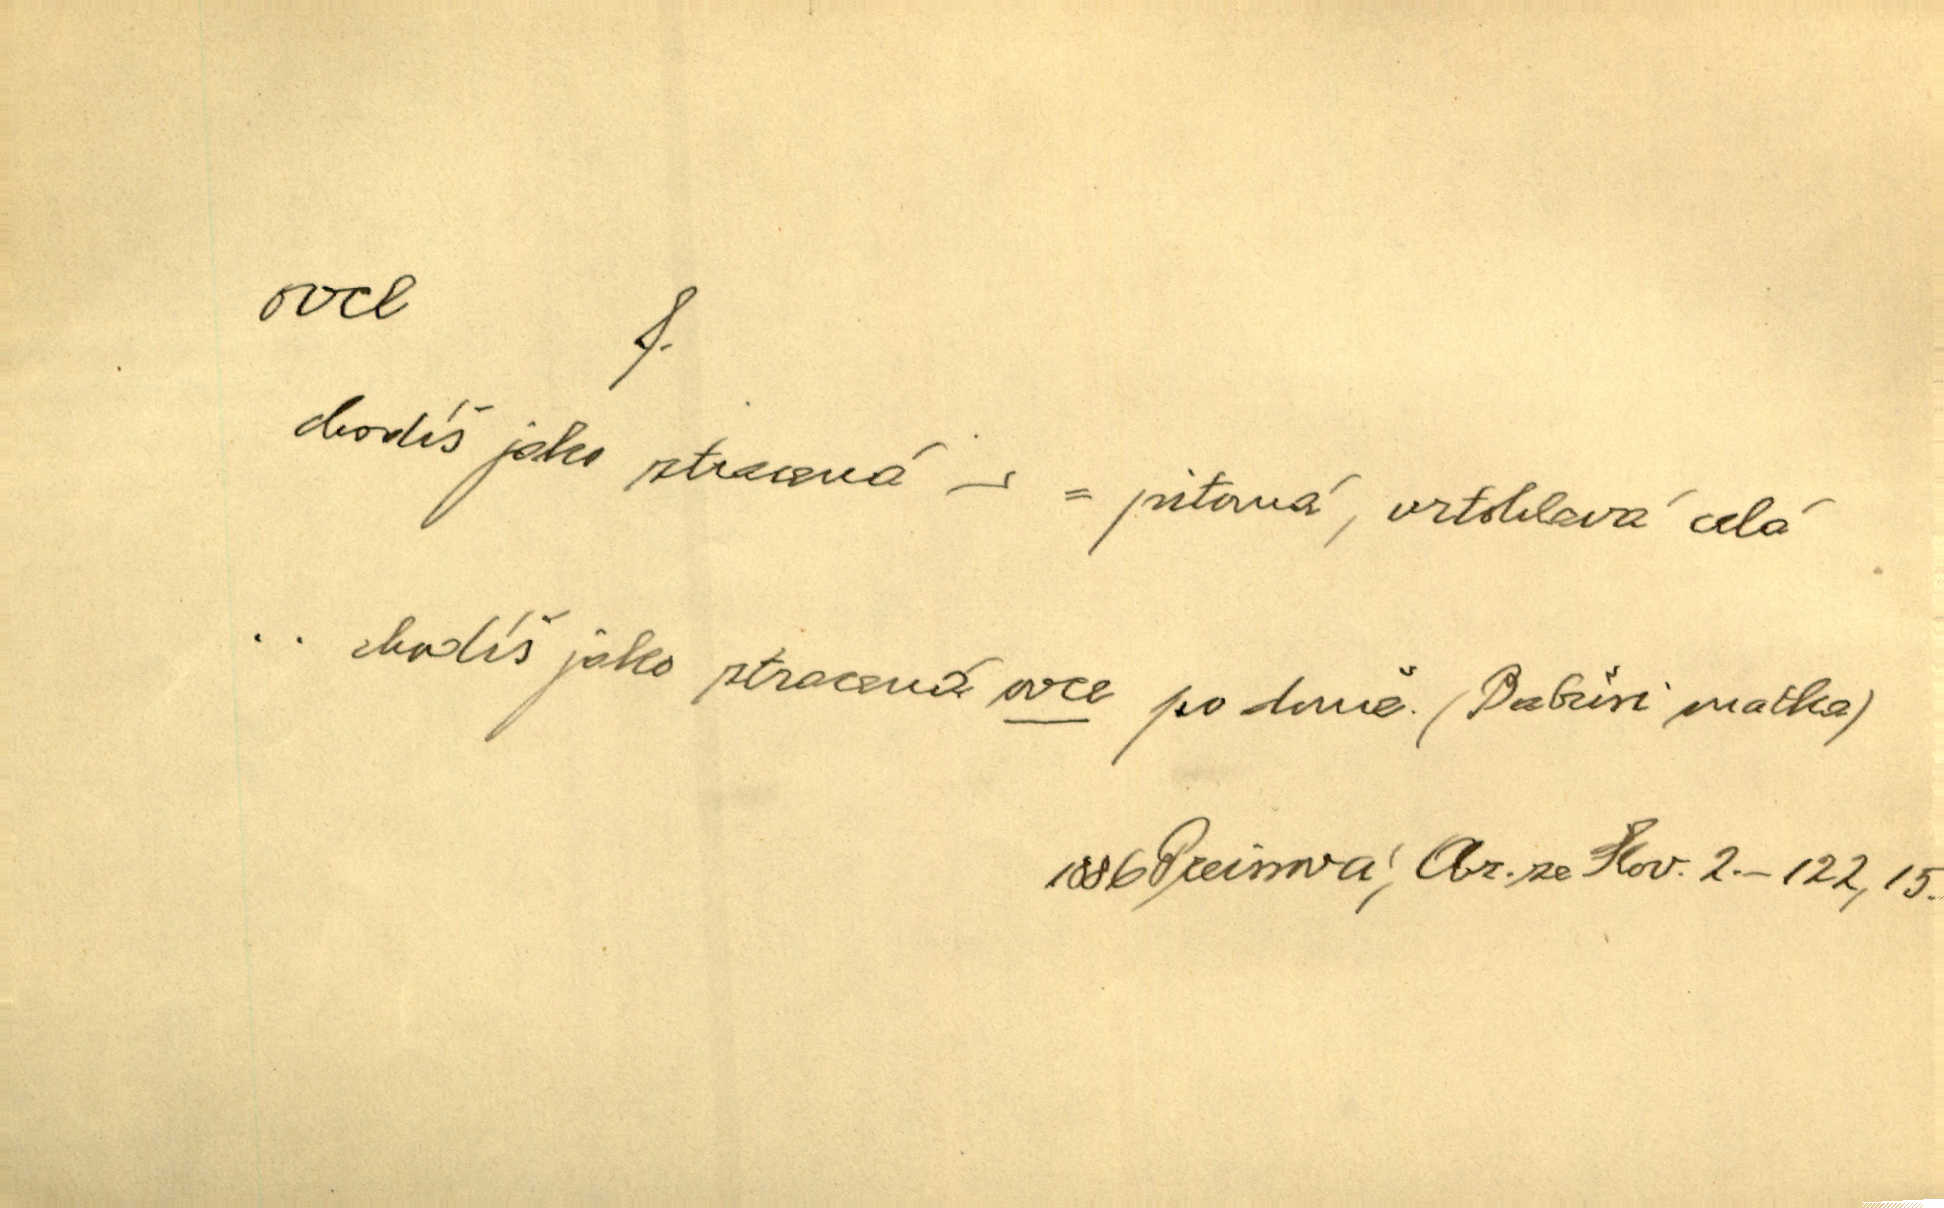 ovce
f.
chodíš jako ztracená — = pitomá, vrtohlavá celá
.. chodíš jako ztracená ovce po domě. (Babúši matka)
1886 Preissová, Obr. ze Slov. 2. – 122, 15.